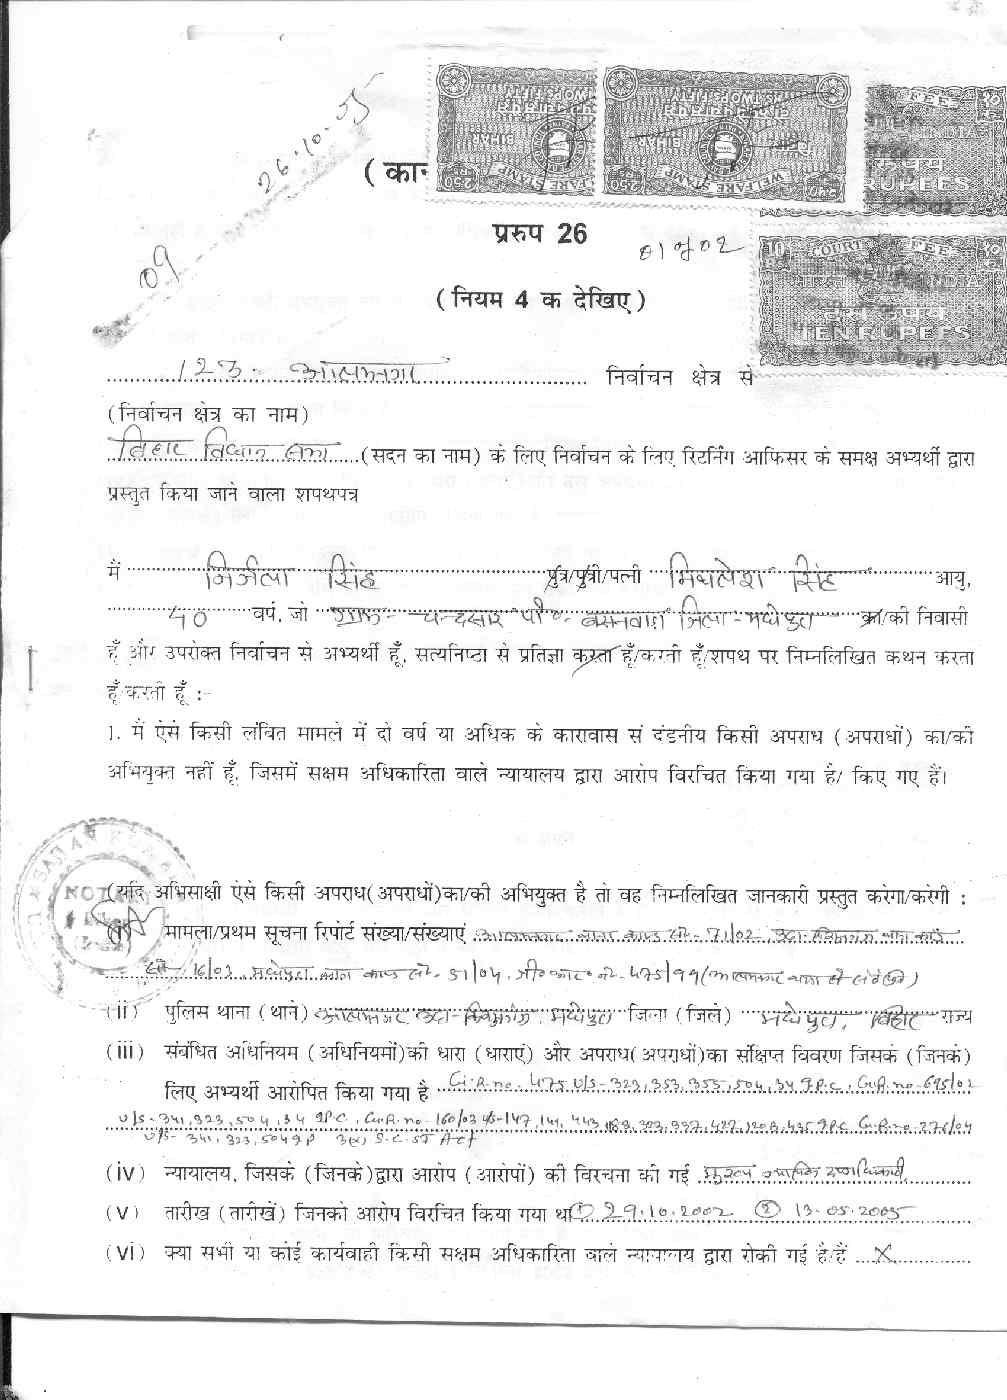 26.10.05
( कान
09
प्ररुप 26
01 of 02
(नियम 4 क देखिए)
WELFARE STAMP
BIHAR
2.50
WELFARE STAMP
BIHAR
2.50
RUPEES
10 COURT FEE
भारत INDIA
दस रुपये
TEN RUPEES
123- आलमनगर निर्वाचन क्षेत्र से
(निर्वाचन क्षेत्र का नाम)
बिहार विधान सभा (सदन का नाम) के लिए निर्वाचन के लिए रिटर्निंग आफिसर के समक्ष अभ्यर्थी द्वारा
प्रस्तुत किया जाने वाला शपथपत्र
मैं निर्जला सिंह पुत्र/पुत्री/पत्नी मिथलेश सिंह आयु,
40 वर्ष, जो ग्राम- चन्दसार पो०- बसनवाड़ा जिला-मधेपुरा का/की निवासी
हूँ और उपरोक्त निर्वाचन से अभ्यर्थी हूँ, सत्यनिष्ठा से प्रतिज्ञा करता हूँ/करती हूँ/शपथ पर निम्नलिखित कथन करता
हूँ/करती हूँ :-
1. मैं ऐसे किसी लंबित मामले में दो वर्ष या अधिक के कारावास से दंडनीय किसी अपराध (अपराधों) का/की
अभियुक्त नहीं हूँ, जिसमें सक्षम अधिकारिता वाले न्यायालय द्वारा आरोप विरचित किया गया है/ किए गए हैं।
(यदि अभिसाक्षी ऐसे किसी अपराध(अपराधों)का/की अभियुक्त है तो वह निम्नलिखित जानकारी प्रस्तुत करेगा/करेगी :
मामला/प्रथम सूचना रिपोर्ट संख्या/संख्याएं आलमनगर थाना काण्ड सं०- 71/02, थाना काण्ड
सं०- 16/03, मधेपुरा थाना काण्ड सं०- 51/04, जी० आर० नं०- 475/99 (आलमनगर थाना से संबंधित)
(ii) पुलिस थाना (थाने) आलमनगर मधेपुरा जिला (जिले) मधेपुरा, बिहार राज्य
(iii) संबंधित अधिनियम (अधिनियमों)की धारा (धाराएं) और अपराध(अपराधों)का संक्षिप्त विवरण जिसके (जिनके)
लिए अभ्यर्थी आरोपित किया गया है G.R.no- 475 U/S- 323, 353, 355, 504, 34 I.P.C, G.R.no- 695/02
U/S- 341, 323, 504, 34 IPC, G.R.no- 160/03 U/S-147, 149, 443, 323, 337, 427, 120B, 435 IPC G.R.no. 276/04
U/S- 341, 323, 504 IP 3(x) S.C. ST Act
(iv) न्यायालय, जिसके (जिनके)द्वारा आरोप (आरोपों) की विरचना की गई मुख्य न्यायिक दण्डाधिकारी,
(v) तारीख (तारीखें) जिनको आरोप विरचित किया गया था ① 29.10.2002 ② 13.05.2005
(vi) क्या सभी या कोई कार्यवाही किसी सक्षम अधिकारिता वाले न्यायालय द्वारा रोकी गई है/हैं X